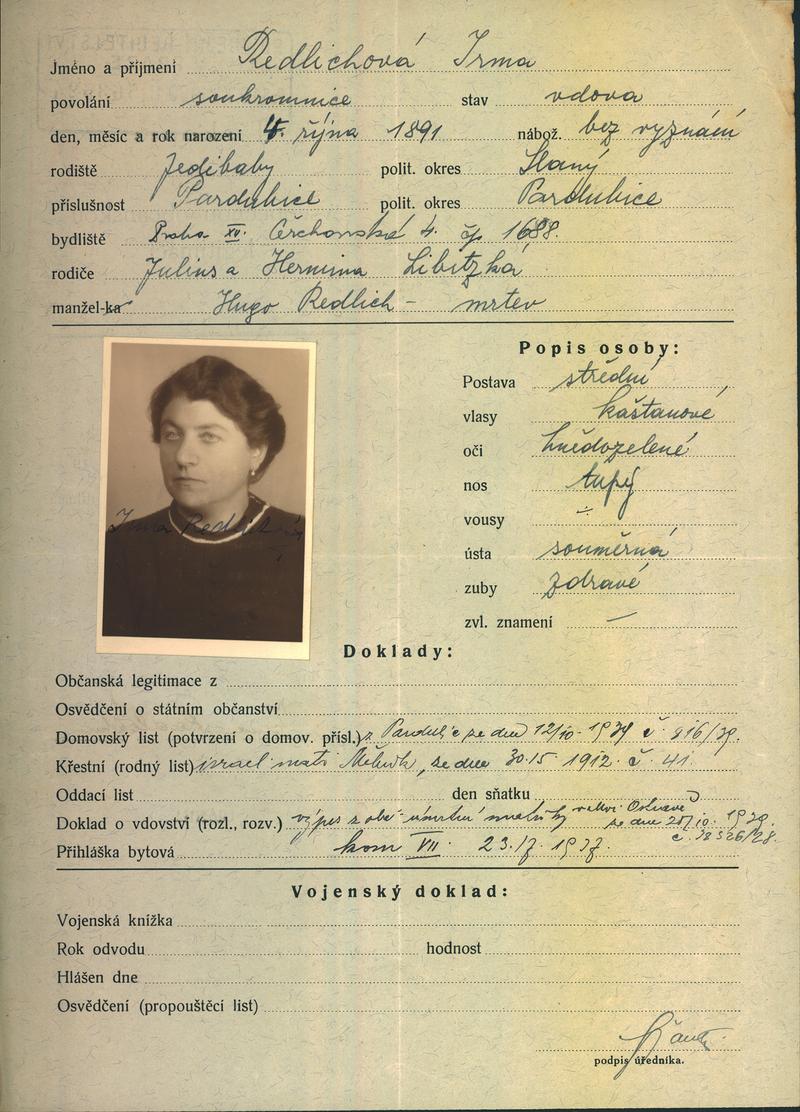 Jméno a příjmení Redlichová Irma
povolání soukromnice stav vdova
den, měsíc a rok narození 4. října 1891 nábož. bez vyznání
rodiště Jedibaby polit. okres Slaný
příslušnost Pardubice polit. okres Pardubice
bydliště Praha XII. 4. čp 1688.
rodiče Julius a Hermina Libitzká
manžel-ka Hugo Redlich - mrtev
Popis osoby:
Postava střední
vlasy kaštanové
oči hnědozelené
nos tupý
vousy -
ústa souměrná
zuby zdravé
zvl. znamení —
Irma Redlichová
Doklady:
Občanská legitimace z
Osvědčení o státním občanství
Domovský list (potvrzení o domov. přísl.) z Pardubic ze dne 12/10 1939 č 916/39.
Křestní (rodný list) israel mat. ze dne 30.15. 1912. č. 41.
Oddací list den sňatku
Doklad o vdovství (rozl., rozv.) výpis z úmrtní matriky ze dne
Přihláška bytová kom VII. 23.17. 1937.
Vojenský doklad:
Vojenská knížka
Rok odvodu hodnost
Hlášen dne
Osvědčení (propouštěcí list)
podpis úředníka.